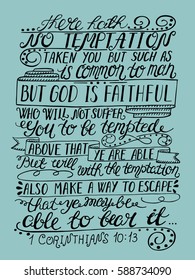 There hath
NO TEMPTATION
TAKEN YOU BUT SUCH AS
is common to man
BUT GOD IS FAITHFUL
WHO WILL NOT SUFFER
You to be tempted
ABOVE THAT YE ARE ABLE
But will with the temptation
ALSO MAKE A WAY TO ESCAPE
that ye may be
able to bear it...
1 CORINTHIANS 10:13
www.shutterstock.com · 588734090